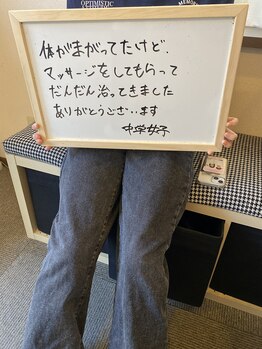 OPTIMISTIC
体がまがってたけど、
マッサージをしてもらって
だんだん治ってきました
ありがとうござい、ます
中学女子